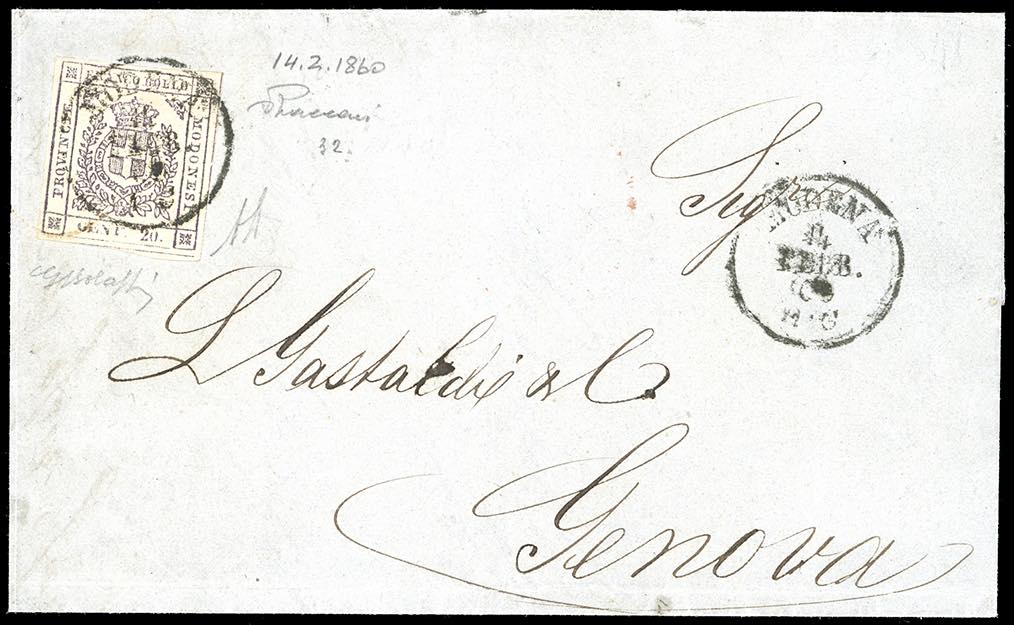 14.2.1860
32.
FRANCOBOLLO
PROVINCIE
MODONESI
CENT. 20.
Sigri
MODENA
14
FEBB.
60
L Gastaldi & C.
Genova